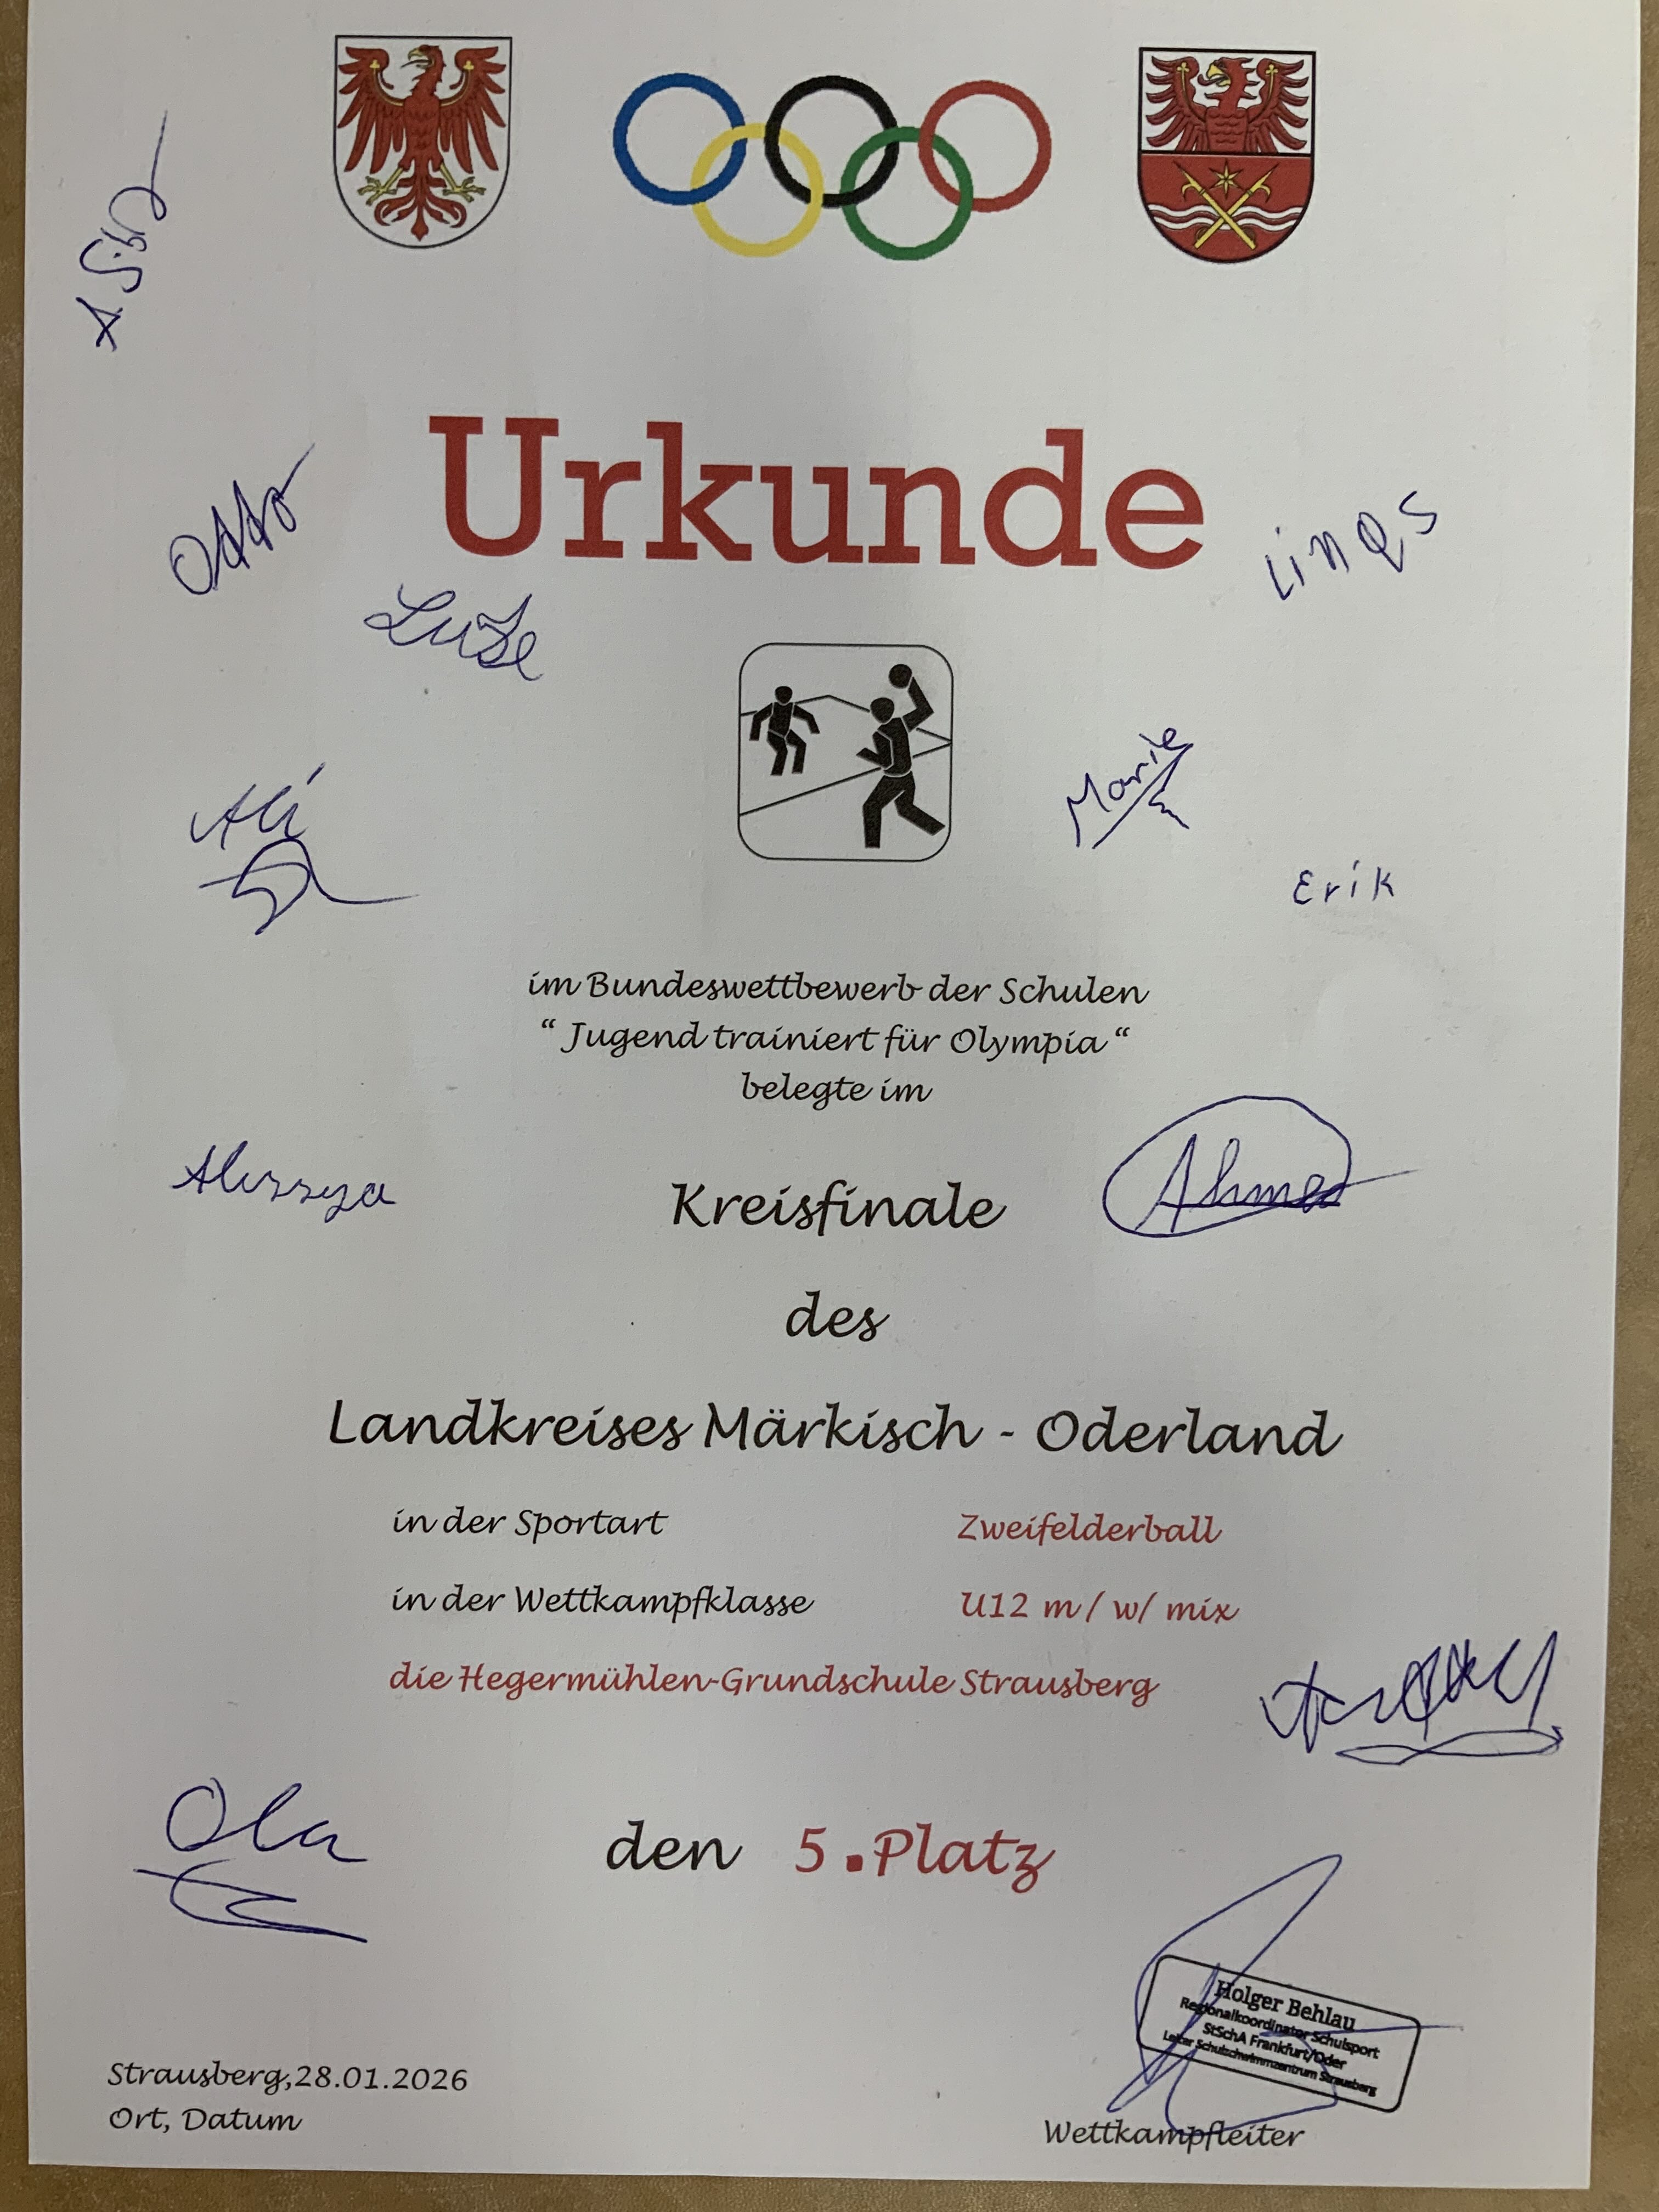 Urkunde
Otto
Linas
Luise
Marie
Ali
Erik
im Bundeswettbewerb der Schulen
“ Jugend trainiert für Olympia “
belegte im
Ahmed
Kreisfinale
des
Landkreises Märkisch - Oderland
in der Sportart Zweifelderball
in der Wettkampfklasse U12 m / w/ mix
die Hegermühlen-Grundschule Strausberg
Ola
den 5.Platz
Holger Behlau
Regionalkoordinator Schulsport
StSchA Frankfurt/Oder
Leiter Schulschwimmzentrum Strausberg
Strausberg,28.01.2026
Ort, Datum
Wettkampfleiter